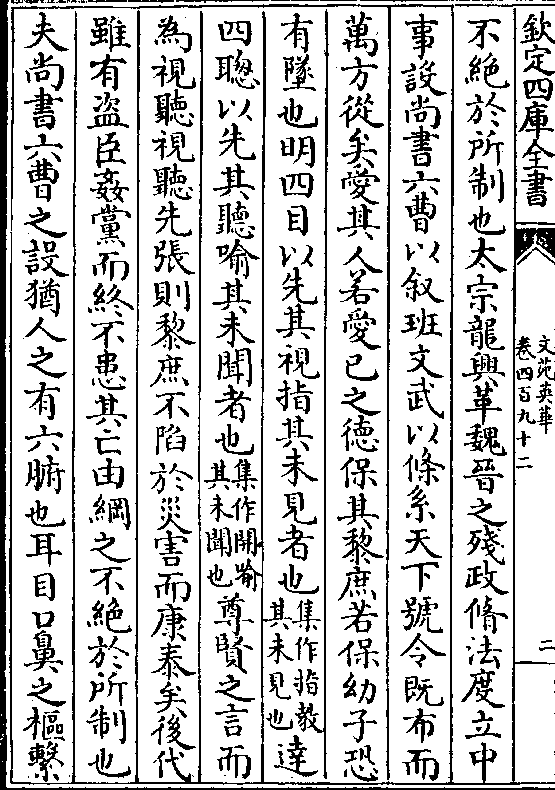 欽定四庫全書
文苑英華
卷四百九十二
二
不絶於所制也太宗龍興革魏晉之殘政脩法度立中
事設尚書六曹以叙班文武以條系天下號令既布而
萬方從矣愛其人若愛已之德保其黎庶若保幼子恐
有墜也明四目以先其視指其未見者也集作指教其未見也達
四聰以先其聽喻其未聞者也集作開喻其未聞也尊賢之言而
為視聽視聽先張則黎庶不陷於災害而康泰矣後代
雖有盗臣姦黨而終不患其亡由綱之不絶於所制也
夫尚書六曹之設猶人之有六腑也耳目口鼻之樞繫